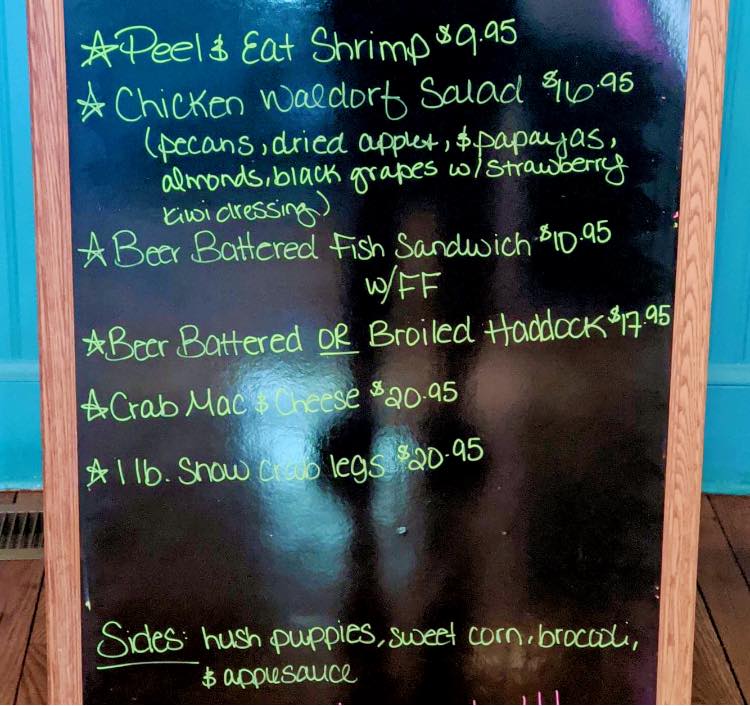 ☆ Peel & Eat Shrimp $9.95
☆ Chicken Waldorf Salad $16.95
(pecans, dried apples, & papayas,
almonds, black grapes w/ strawberry
kiwi dressing)
☆ Beer Battered Fish Sandwich $10.95
w/FF
☆ Beer Battered OR Broiled Haddock $17.95
☆ Crab Mac & Cheese $20.95
☆ 1 lb. Snow Crab legs $20.95
Sides: hush puppies, sweet corn, broccoli,
& applesauce